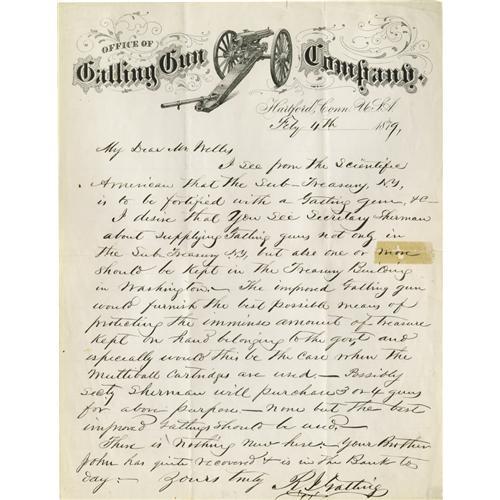 OFFICE OF
Gatling Gun Company.
Hartford, Conn. U.S.A.
Feby 4th 1879,
My Dear Mr Welles
I see from the Scientific
American that the Sub-Treasury, N.Y,
is to be fortified with a Gatling gun, &c-
I desire that you see Secretary Sherman
about supplying Gatling guns not only in
the Sub Treasury N.Y, but also one or more
should be kept in the Treasury Building
in Washington.- The improved Gatling gun
would furnish the best possible means of
protecting the imminse amount of treasure
kept on hand belonging to the govt, and
especially would this be the case when the
Multiball Cartridges are used.- Possibly
Secty Sherman will purchase 3 or 4 guns
for above purpose - none but the best
improved Gatlings should be used.-
There is nothing new here.- Your Brother
John has quite recovered & is in the Bank to
day.- Yours truly R. J. Gatling